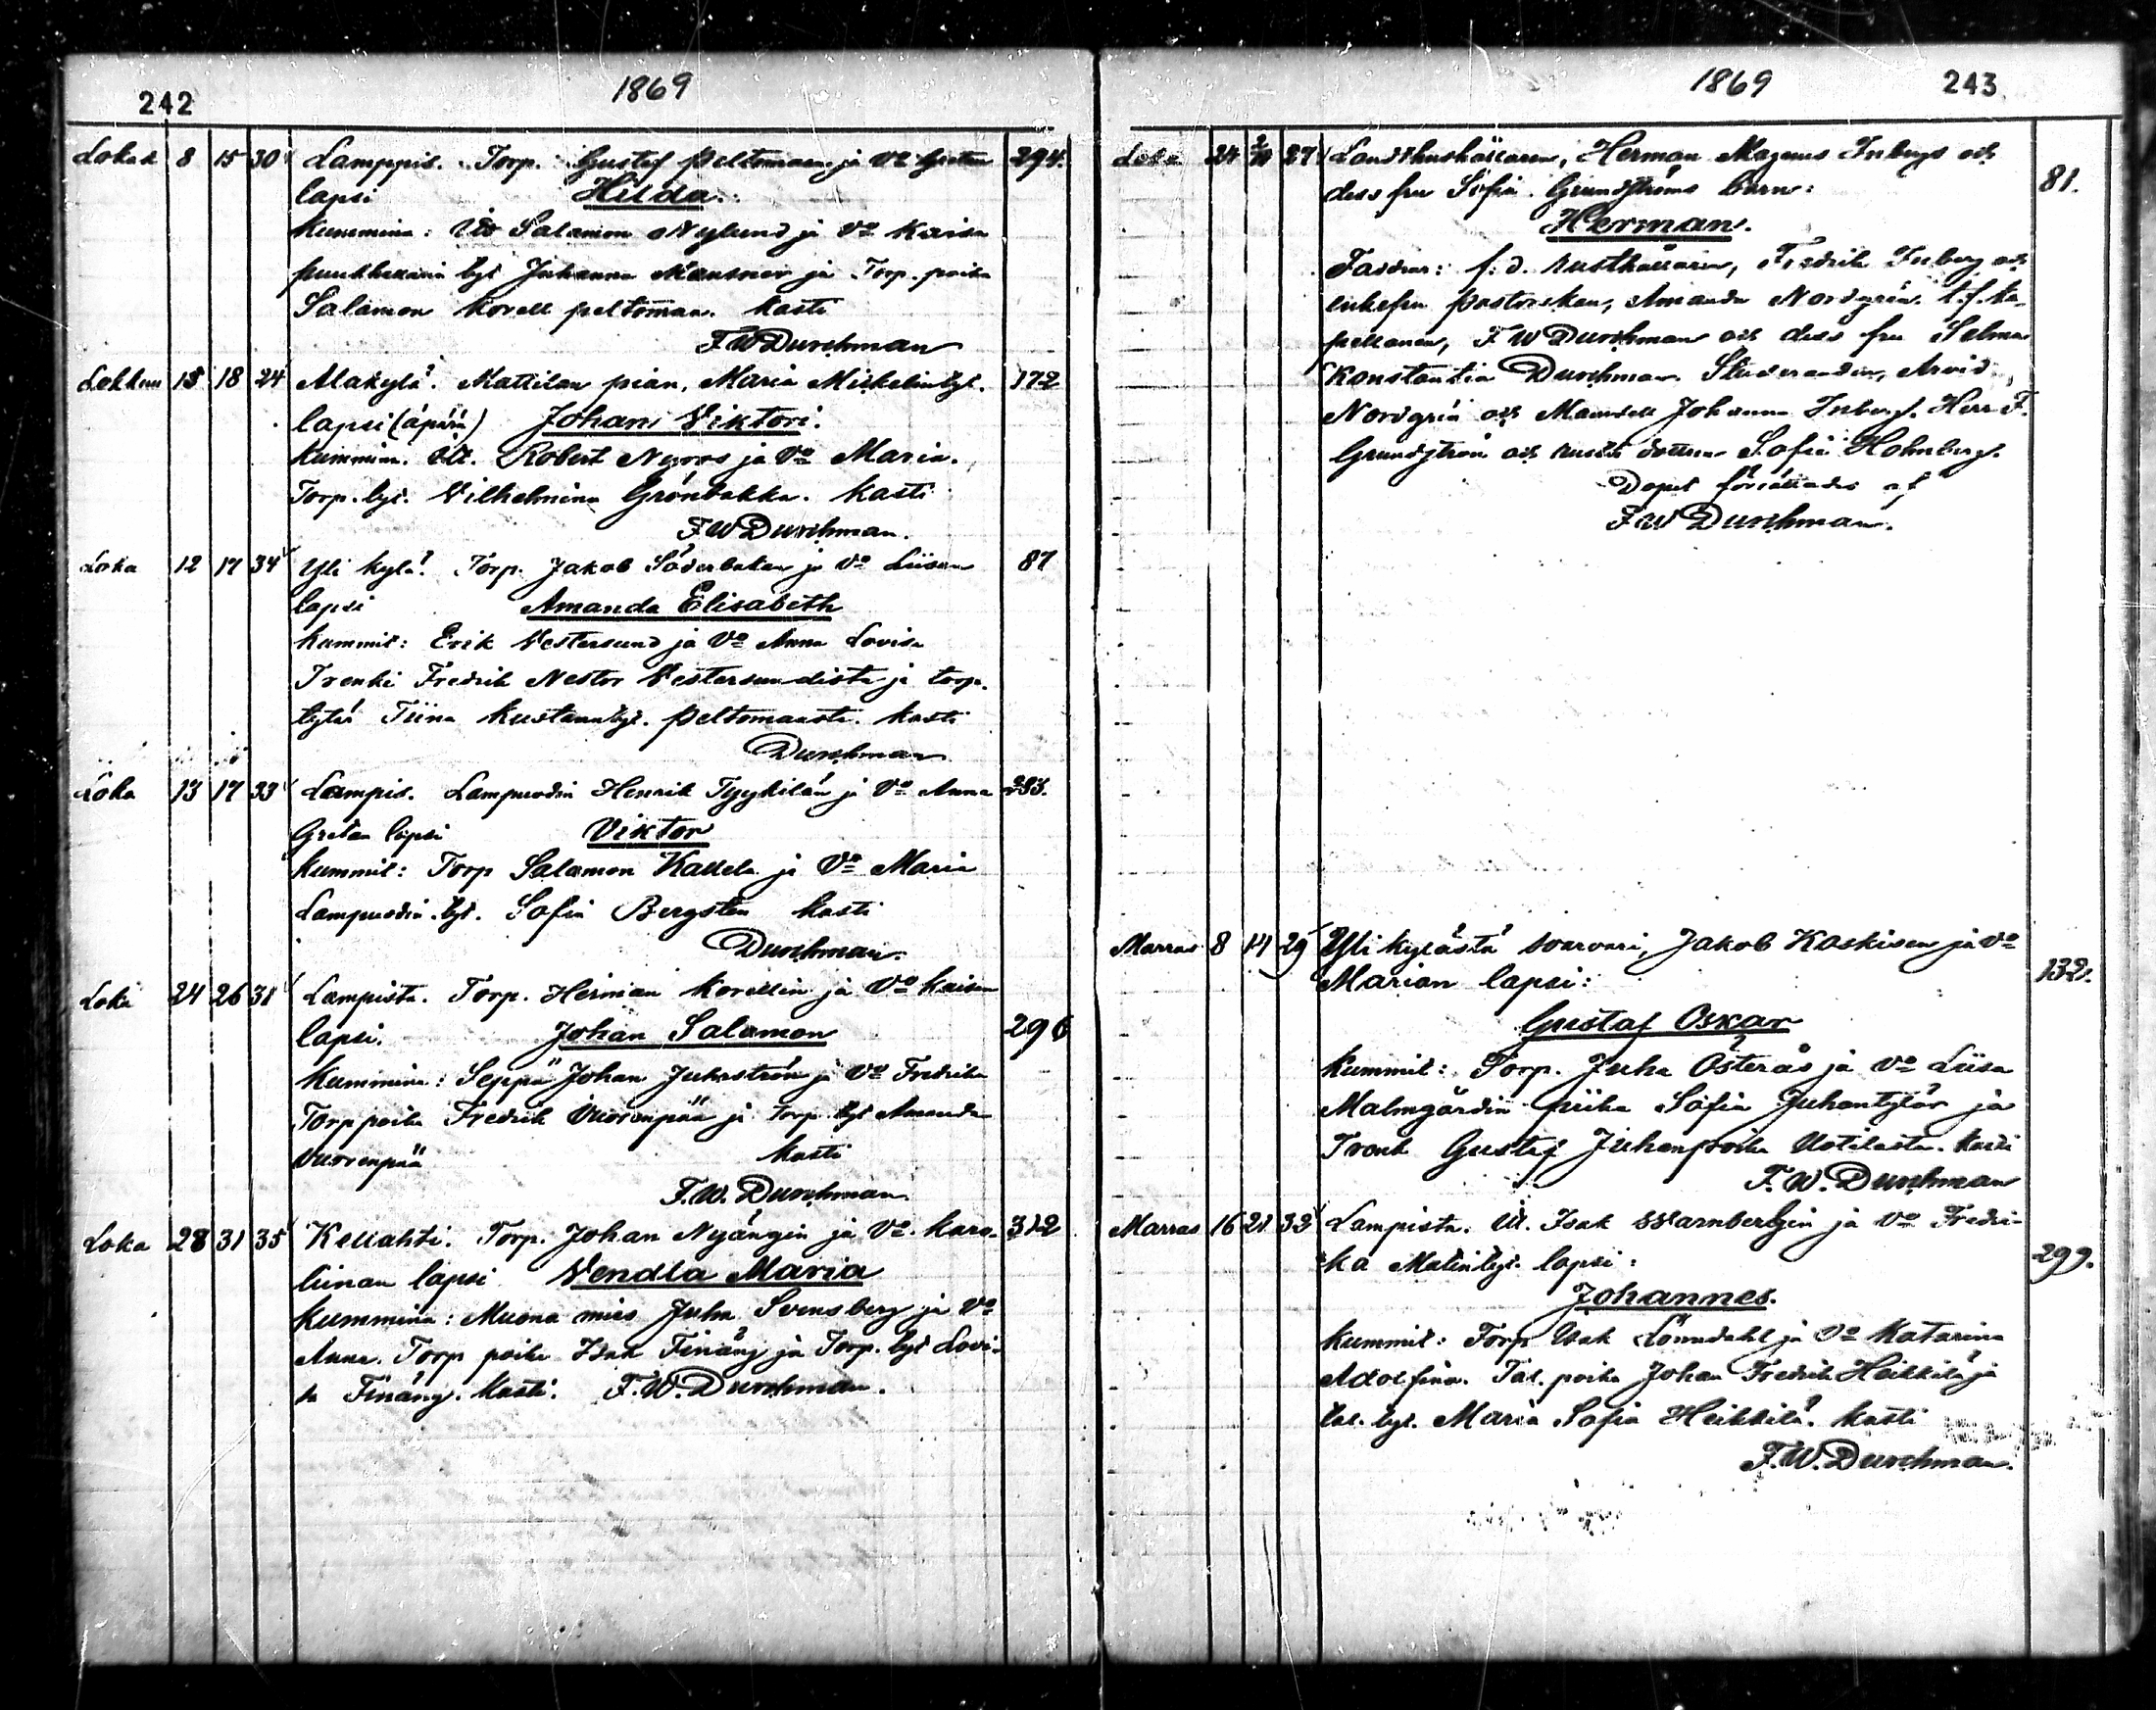 242
1869
Lokak 8 15 30 Lamppis. Torp. Gustaf Peltoman ja Vo Gretan 294.
lapsi Hilda.
Kummina: Salamon Nylund ja Vo Kaisa
tyt Johanna ja Torp. poika
Salamon Korell peltoman. Kasti
F W Durchman
18 24 Alakylä. Mattilan pian, Maria Mickelintyt. 172
lapsi (äpärä) Johan Viktori.
Kummina. Robert Nyroos ja Vo Maria.
Torp. tyt. Vilhelmina Grönbakka. Kasti
F W Durchman.
Loka 12 17 34 Yli kylä. Torp. Jakob Söderbakan ja Vo Liisan 87
lapsi Amanda Elisabeth
kummit: Erik Vestersund ja Vo Anna Lovisa
Trenki Fredrik Nestor Vestersundista ja torp.
tytär Tiina Kustaantyt. Peltomaasta. Kasti
Durchman
Loka 13 17 33 Lampis. Lampuodin Henrik Tyykilän ja Vo Anna 283.
Gretan lapsi Viktor
Kummit: Torp Salamon Kallela ja Vo Maria
Lampuodin tyt. Sofia Bergsten Kasti
Durchman.
Loka 24 26 31 Lampista. Torp. Herman Korellin ja Vo Kaisan
lapsi. Johan Salamon 296
Kummina: Seppä Johan Juhrström ja Vo Fredrika
Torp poika Fredrik Vuorenpää ja torp tyt Amanda
Vuorenpää Kasti
F. W. Durchman
Loka 28 31 35 Kellahti. Torp. Johan Nyängin ja Vo. Karo- 312
liinan lapsi Vendla Maria
Kummina: Muona mies Juha Svensberg ja Vo
Anna. Torp poika Isak Finäng ja Torp. tyt Lovi-
sa Finäng. Kasti. F. W. Durchman.
1869 243
Loka 24 27 Landthushållaren, Herman Magnus Inbergs och
dess fru Sofia Grundströms barn: 81.
Herman.
Faddrar: f. d. rusthållaren, Fredrik Inberg och
enkefru pastorskan, Amanda Nordgrén. t. f. ka-
pellanen, F W Durchman och dess fru Selma
Konstantia Durchman. Studeranden, Arvid
Nordgrén och Mamsell Johanna Inberg. Herr F.
Grundström och dottren Sofia Holmberg.
Dopet förrättades af
F W Durchman.
Marras 8 14 29 Yli kylästä sorvari, Jakob Koskisen ja Vo
Marian lapsi: 132.
Gustaf Oskar
Kummit: Torp. Juha Österås ja Vo Liisa
Malmgårdin piika Sofia Juhantytär ja
Trenk Gustaf Juhanpoika Uotilasta. Kasti
F. W. Durchman
Marras 16 21 33 Lampista. It. Isak Warnbergin ja Vo Fredri-
ka Matintyt. lapsi: 299.
Johannes.
Kummit: Torp Isak Lönndahl ja Vo Katarina
Adolfina. Tal. poika Johan Fredrik Heikkilä ja
tal. tyt. Maria Sofia Heikkilä. Kasti
F. W. Durchman.